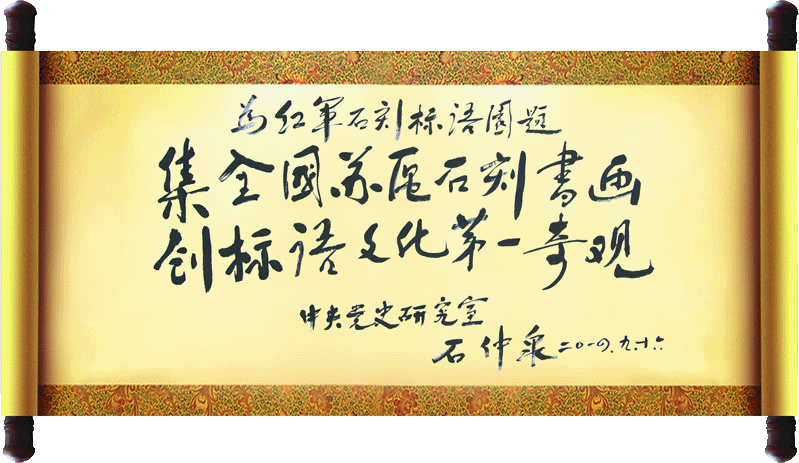 为红军石刻标语园题
集全国苏区石刻书画
创标语文化第一奇观
中央党史研究室
石仲泉二〇一〇.九.十六